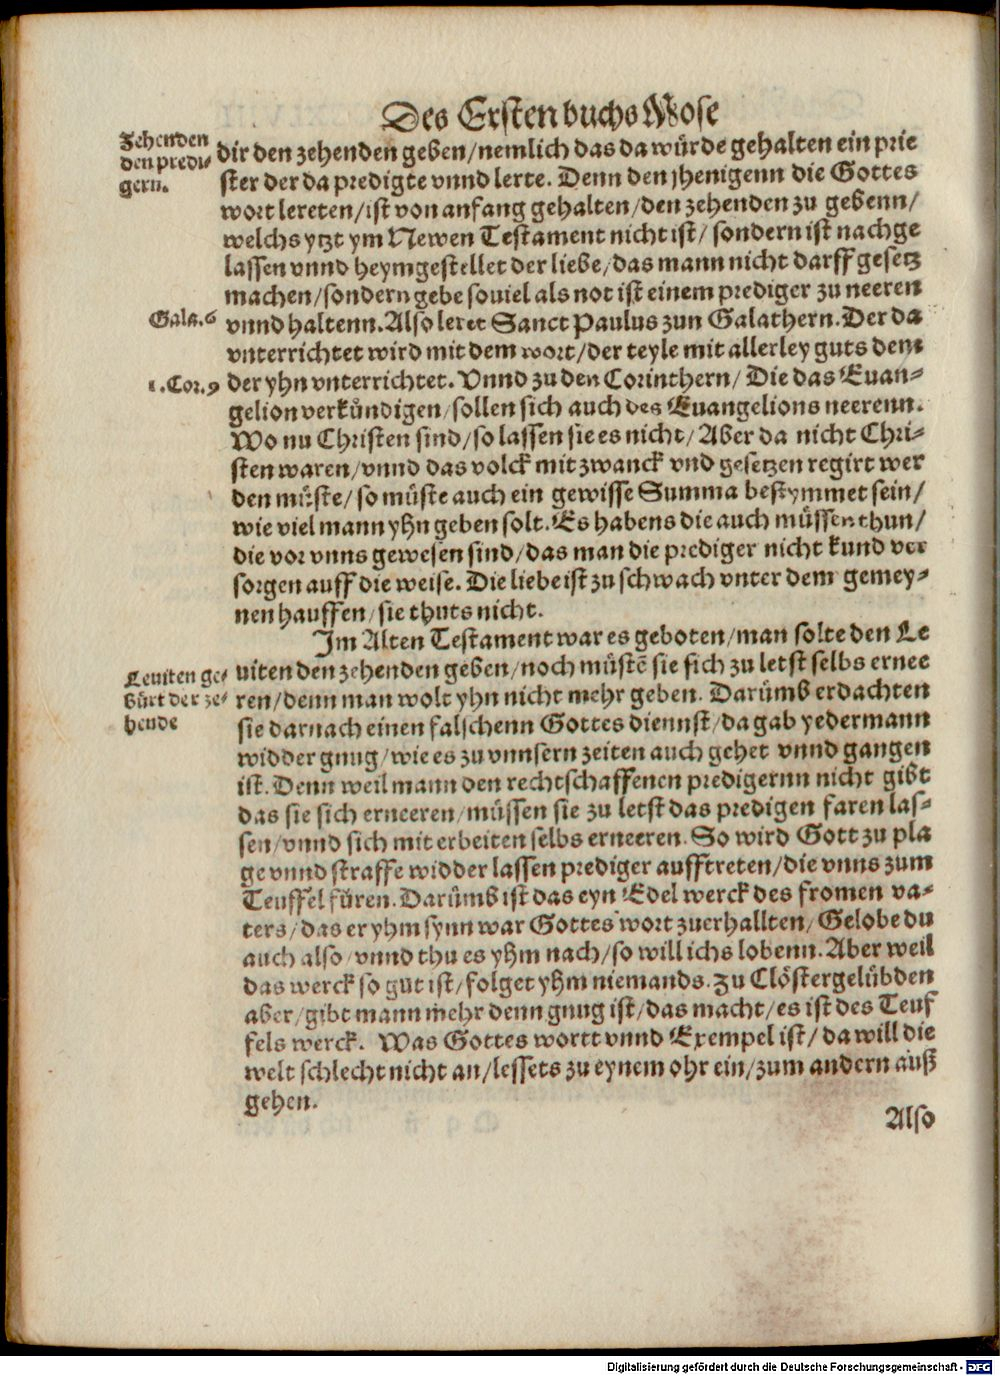 Des Ersten buchs Mose
Zehenden
den predi-
gern.
dir den zehenden geben/nemlich das da würde gehalten ein prie
ster der da predigte vnnd lerte. Denn den jhenigenn die Gottes
wort lereten/ist von anfang gehalten/den zehenden zu gebenn/
welchs ytzt ym Newen Testament nicht ist/ sondern ist nachge
lassen vnnd heymgestellet der liebe/das mann nicht darff gesetz
machen/sondern gebe souiel als not ist einem prediger zu neeren
Gala.6
vnnd haltenn.Also leret Sanct Paulus zun Galathern.Der da
vnterrichtet wird mit dem wort/der teyle mit allerley guts dem
1.Cor.9
der yhn vnterrichtet. Vnnd zu den Corinthern/ Die das Euan-
gelion verkündigen/sollen sich auch des Euangelions neerenn.
Wo nu Christen sind/so lassen sie es nicht/ Aber da nicht Chri-
sten waren/vnnd das volck mit zwanck vnd gesetzen regirt wer
den müste/so müste auch ein gewisse Summa bestymmet sein/
wie viel mann yhn geben solt.Es habens die auch müssen thun/
die vor vnns gewesen sind/das man die prediger nicht kund ver
sorgen auff die weise. Die liebe ist zu schwach vnter dem gemey-
nen hauffen/sie thuts nicht.
Im Alten Testament war es geboten/man solte den Le
Leuiten ge-
bürt der ze-
hende
uiten den zehenden geben/noch müstē sie sich zu letst selbs ernee
ren/denn man wolt yhn nicht mehr geben. Darümb erdachten
sie darnach einen falschenn Gottes diennst/da gab yedermann
widder gnug/wie es zu vnnsern zeiten auch gehet vnnd gangen
ist. Denn weil mann den rechtschaffenen predigernn nicht gibt
das sie sich erneeren/müssen sie zu letst das predigen faren las-
sen/vnnd sich mit erbeiten selbs erneeren. So wird Gott zu pla
ge vnnd straffe widder lassen prediger aufftreten/die vnns zum
Teuffel füren.Darümb ist das eyn Edel werck des fromen va-
ters/das er yhm synn war Gottes wort zuerhallten/Gelobe du
auch also/vnnd thu es yhm nach/so will ichs lobenn.Aber weil
das werck so gut ist/folget yhm niemands.Zu Clöstergelübden
aber/gibt mann mehr denn gnug ist/das macht/es ist des Teuf
fels werck. Was Gottes wortt vnnd Exempel ist/da will die
welt schlecht nicht an/lessets zu eynem ohr ein/zum andern auß
gehen.
Also
Digitalisierung gefördert durch die Deutsche Forschungsgemeinschaft - DFG